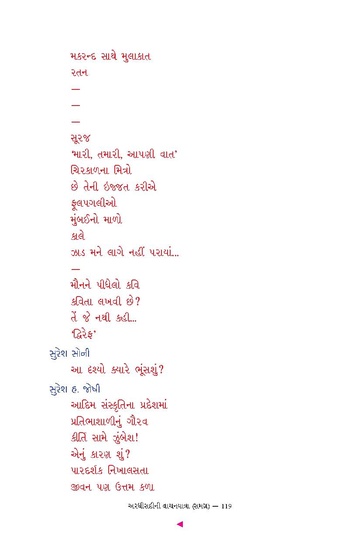 મકરન્દ સાથે મુલાકાત
રતન
—
—
—
સૂરજ
‘મારી, તમારી, આપણી વાત’
ચિરકાળના મિત્રો
છે તેની ઇજ્જત કરીએ
ફૂલપગલીઓ
મુંબઈનો માળો
કાલે
ઝાડ મને લાગે નહીં પરાયાં...
—
મૌનને પીધેલો કવિ
કવિતા લખવી છે?
તેં જે નથી કહી...
‘દ્વિરેફ’
સુરેશ સોની
આ દૃશ્યો ક્યારે ભૂંસશું?
સુરેશ હ. જોષી
આદિમ સંસ્કૃતિના પ્રદેશમાં
પ્રતિભાશાળીનું ગૌરવ
કીર્તિ સામે ઝુંબેશ!
એનું કારણ શું?
પારદર્શક નિખાલસતા
જીવન પણ ઉત્તમ કળા
અરધી સદીની વાચનયાત્રા (સમગ્ર) — 119